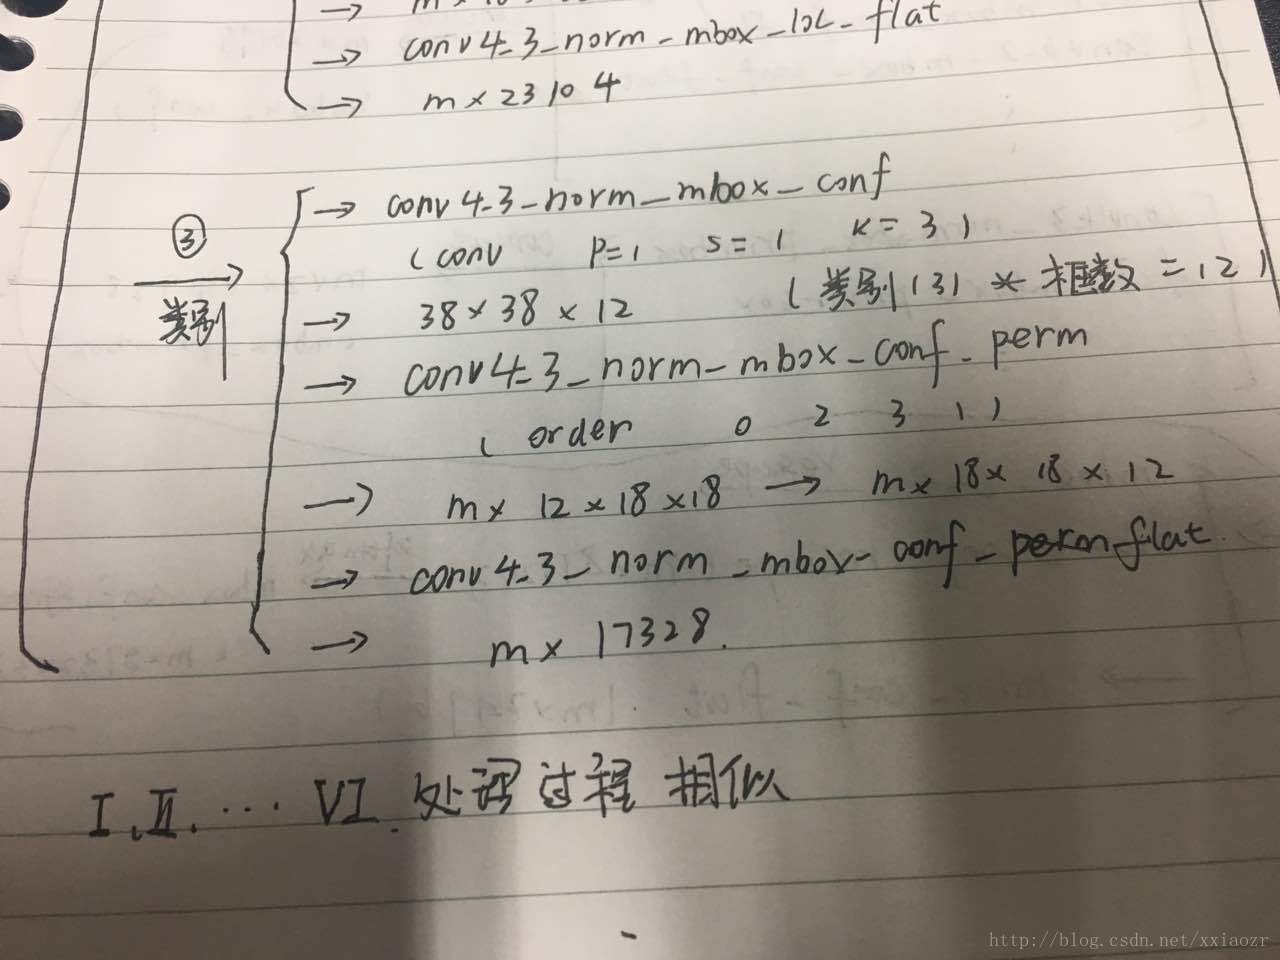 → m×
→ conv4-3-norm-mbox-loc-flat
→ m×23104
③
→
类别
→ conv4-3-norm-mbox-conf
(conv p=1 s=1 k=3)
→ 38×38×12 (类别(3)*框数=12)
→ conv4-3-norm-mbox-conf-perm
(order 0 2 3 1)
→ m×12×18×18 → m×18×18×12
→ conv4-3-norm-mbox-conf-flat
→ m×17328.
I、II、··· VI. 处理过程相似
http://blog.csdn.net/xxiaozr